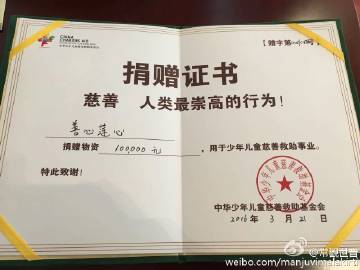 CHINA CHARITIES
【赠字第 号】
捐赠证书
慈善 人类最崇高的行为！
善心莲心
捐赠物资 100,000元 ，用于少年儿童慈善救助事业。
特此致谢！
中华少年儿童慈善救助基金会
中华少年儿童慈善救助基金会
2016年3月21日
weibo.com/manjuvimela